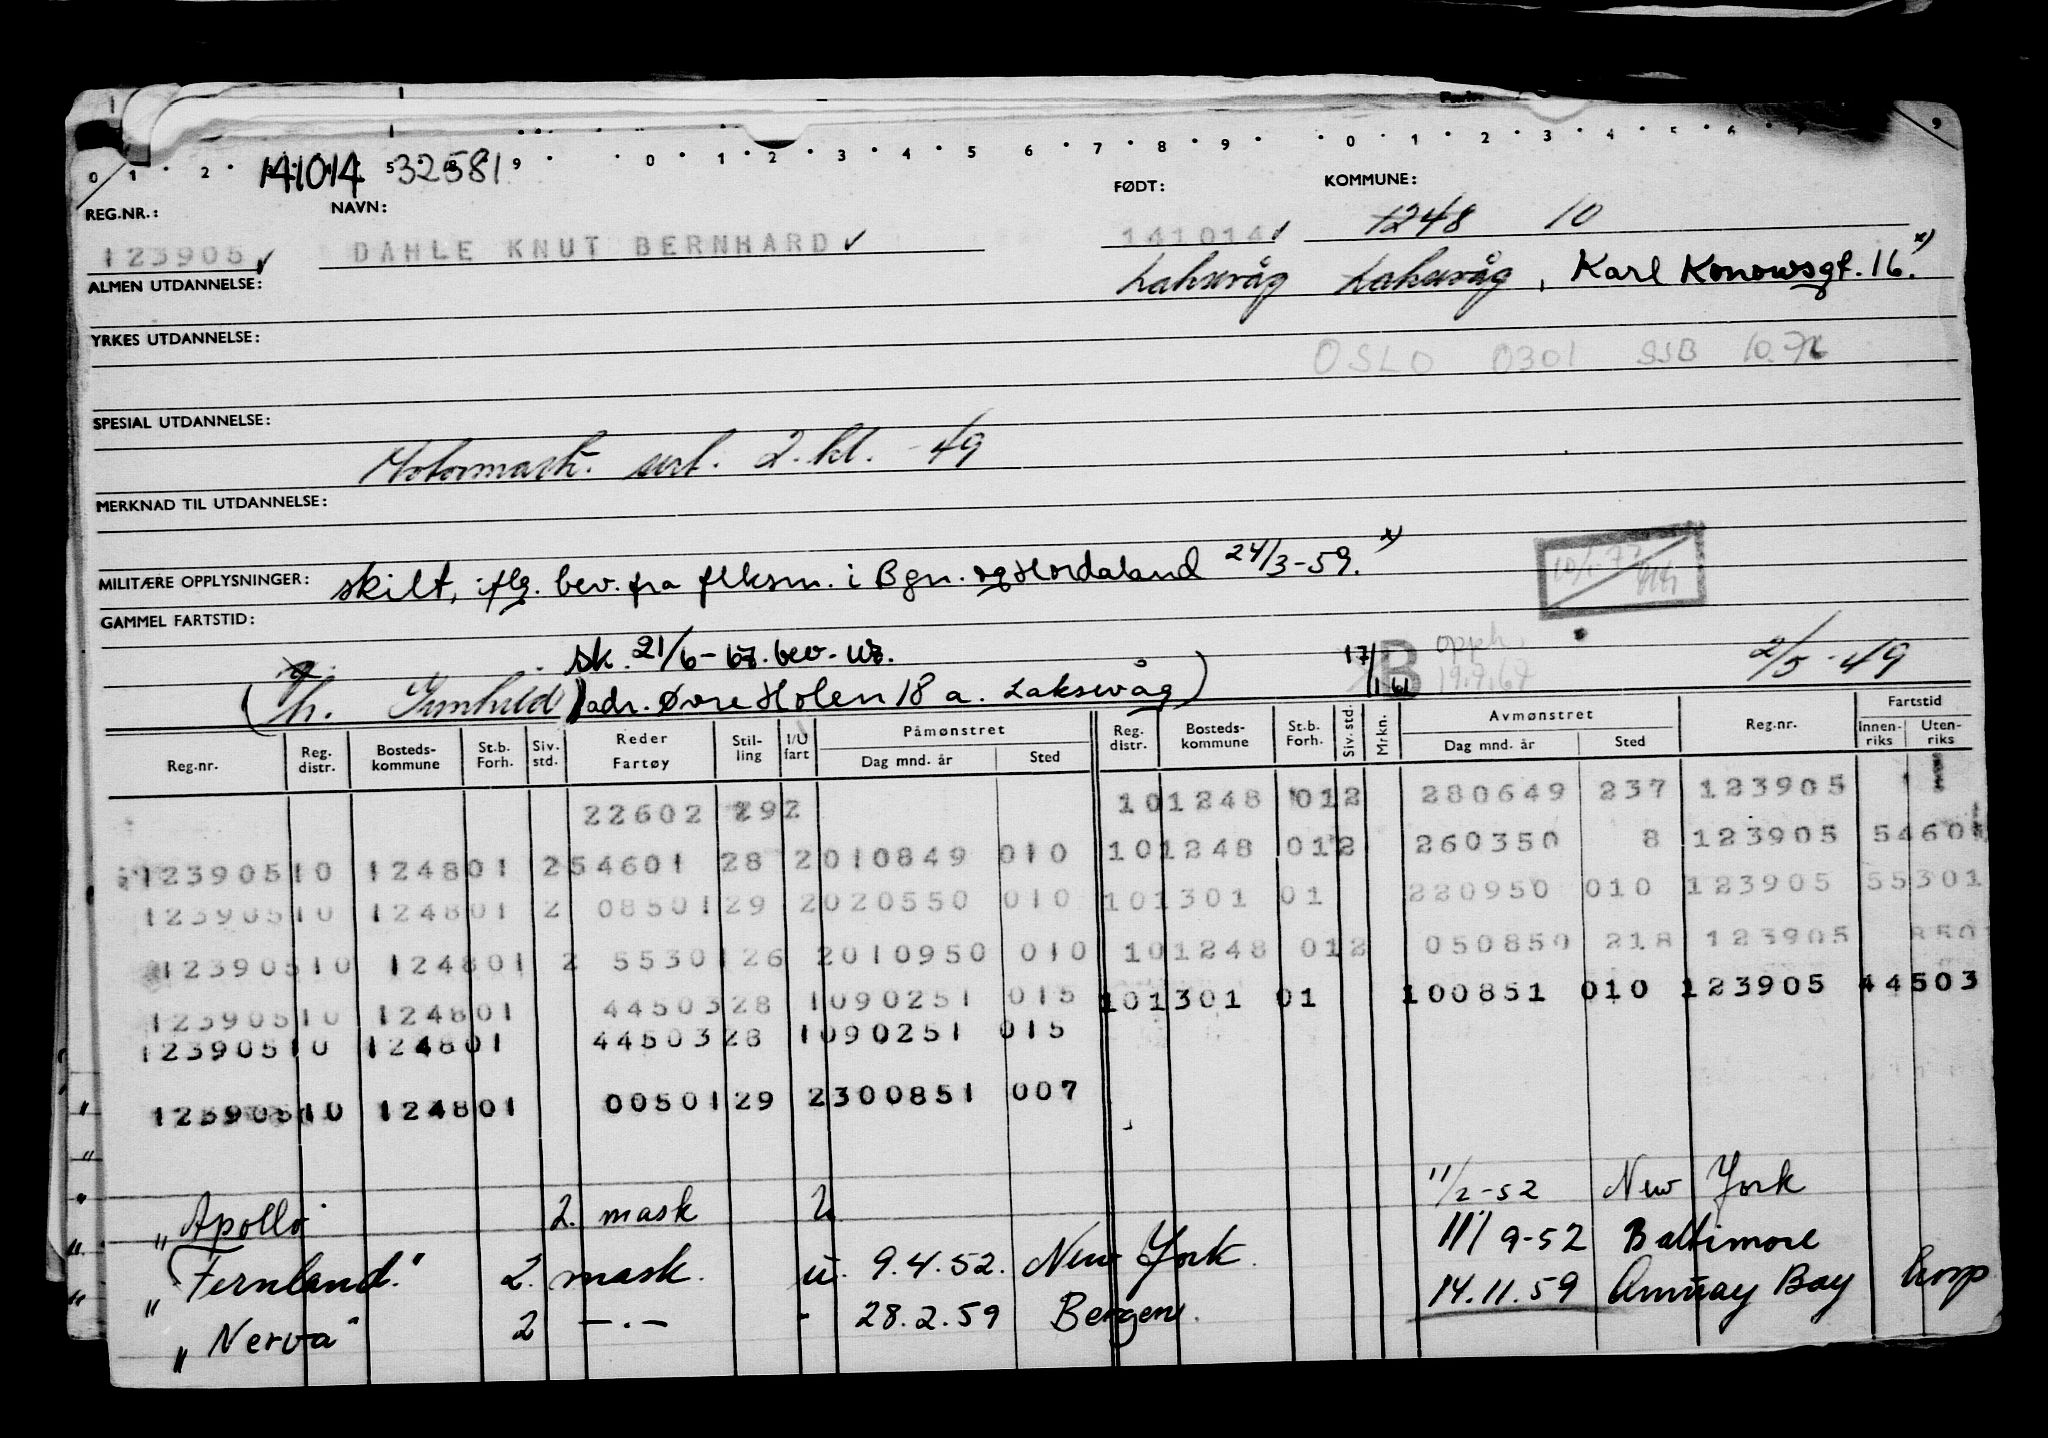 0 1 2 9 0 1 2 3 4 5 6 7 8 9 0 1 2 3 4 5 6 9
141014 32581
REG.NR.: NAVN: FØDT: KOMMUNE:
1248 10
123905 DAHLE KNUT BERNHARD 141014
ALMEN UTDANNELSE: Laksevåg Laksevåg, Karl Konowsgt. 16. x)
YRKES UTDANNELSE:
OSLO 0301 SSB 10.
SPESIAL UTDANNELSE:
Motormask. sert. 2. kl. -49
MERKNAD TIL UTDANNELSE:
MILITÆRE OPPLYSNINGER: skilt, iflg. bev. fra flksm. i Bgn. og Hordaland 24/3-59. x)
GAMMEL FARTSTID:
sk. 21/6-
17/1 61 B opph. 19.9.67 2/5-49
adr. Øvre Holen 18 a. Laksevåg)
Reg.nr. Reg. distr. Bosteds-kommune St.b. Forh. Siv. std. Reder Fartøy Stil-ling I/U fart Påmønstret Dag mnd. år Sted Reg. distr. Bosteds-kommune St.b. Forh. Siv. std. Mrkn. Avmønstret Dag mnd. år Sted Reg.nr. Fartstid Innen-riks Uten-riks
22602 292 101248 012 280649 237 123905
12390510 124801 254601 28 2010849 010 101248 012 260350 8 123905 54601
12390510 124801 2 0850129 2020550 010 101301 01 220950 010 123905 55301
12390510 124801 2 5530126 2010950 010 101248 012 050850 218 123905 8501
12390510 124801 4450328 1090251 015 101301 01 100851 010 123905 44503
12390510 124801 4450328 1090251 015
12390510 124801 0050129 2300851 007
"Apollo" 2. mask 11/2-52 New York
"Fernland." 2. mask. u. 9.4.52. New York. 11/9-52 Baltimore
"Nerva" 2 —.— - 28.2.59 Bergen. 14.11.59 Amuay Bay